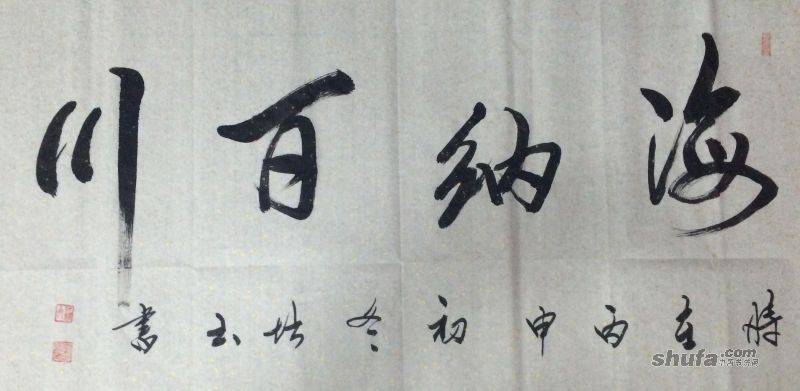 海纳百川
时在丙申初冬 书
shufa.com